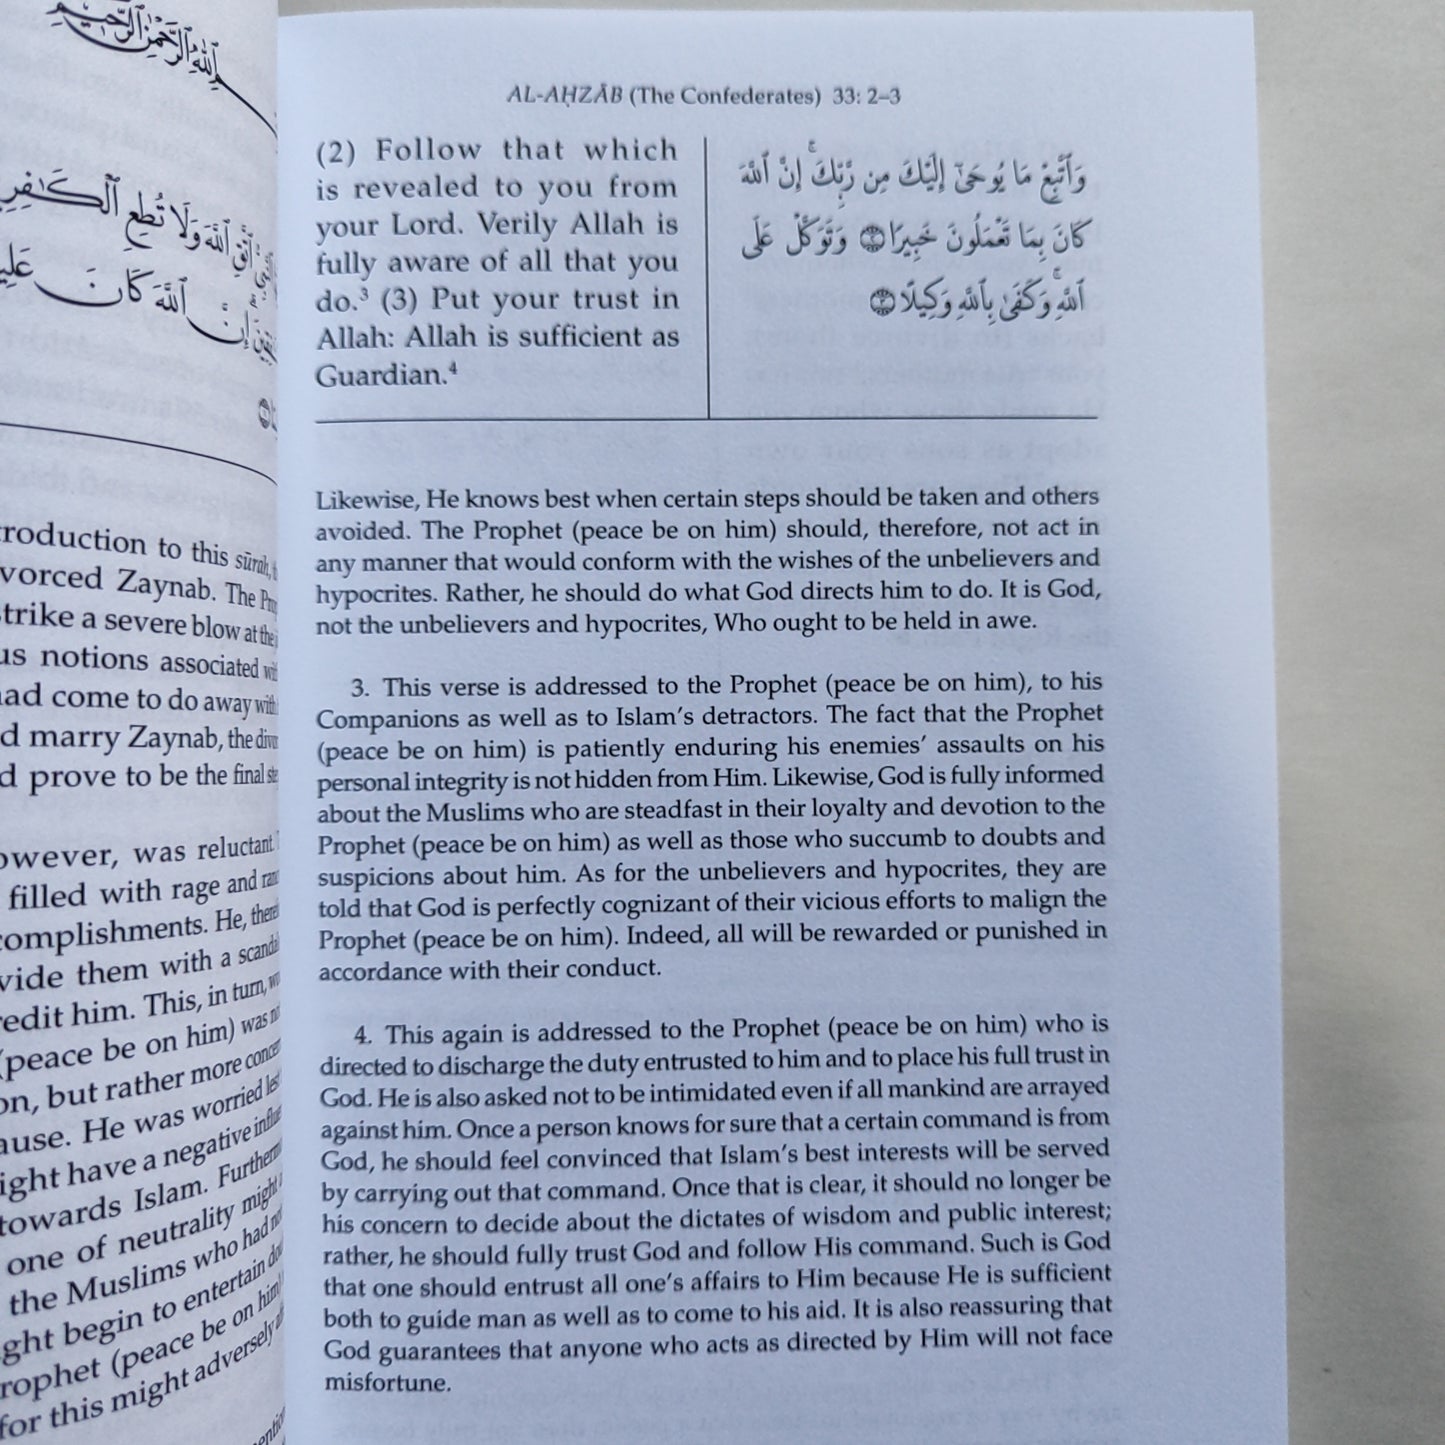 ٱللَّهِ ٱلرَّحْمَٰنِ ٱلرَّحِيمِ
ٱتَّقِ ٱللَّهَ وَلَا تُطِعِ ٱلْكَٰفِرِي
إِنَّ ٱللَّهَ كَانَ عَلِي
troduction to this sūrah,
vorced Zaynab. The
strike a severe blow at the
us notions associated
had come to do away with
d marry Zaynab, the
d prove to be the final
owever, was reluctant.
filled with rage and
complishments. He,
vide them with a
redit him. This, in turn,
(peace be on him) was
on, but rather more
ause. He was worried
ight have a negative
towards Islam.
one of neutrality might
the Muslims who had
ght begin to entertain
rophet (peace be on him)
for this might adversely
AL-AḤZĀB (The Confederates) 33: 2–3
(2) Follow that which
is revealed to you from
your Lord. Verily Allah is
fully aware of all that you
do.³ (3) Put your trust in
Allah: Allah is sufficient as
Guardian.⁴
وَٱتَّبِعْ مَا يُوحَىٰٓ إِلَيْكَ مِن رَّبِّكَ ۚ إِنَّ ٱللَّهَ
كَانَ بِمَا تَعْمَلُونَ خَبِيرًا ۝٢ وَتَوَكَّلْ عَلَى
ٱللَّهِ ۚ وَكَفَىٰ بِٱللَّهِ وَكِيلًا ۝٣
Likewise, He knows best when certain steps should be taken and others
avoided. The Prophet (peace be on him) should, therefore, not act in
any manner that would conform with the wishes of the unbelievers and
hypocrites. Rather, he should do what God directs him to do. It is God,
not the unbelievers and hypocrites, Who ought to be held in awe.
3. This verse is addressed to the Prophet (peace be on him), to his
Companions as well as to Islam's detractors. The fact that the Prophet
(peace be on him) is patiently enduring his enemies' assaults on his
personal integrity is not hidden from Him. Likewise, God is fully informed
about the Muslims who are steadfast in their loyalty and devotion to the
Prophet (peace be on him) as well as those who succumb to doubts and
suspicions about him. As for the unbelievers and hypocrites, they are
told that God is perfectly cognizant of their vicious efforts to malign the
Prophet (peace be on him). Indeed, all will be rewarded or punished in
accordance with their conduct.
4. This again is addressed to the Prophet (peace be on him) who is
directed to discharge the duty entrusted to him and to place his full trust in
God. He is also asked not to be intimidated even if all mankind are arrayed
against him. Once a person knows for sure that a certain command is from
God, he should feel convinced that Islam's best interests will be served
by carrying out that command. Once that is clear, it should no longer be
his concern to decide about the dictates of wisdom and public interest;
rather, he should fully trust God and follow His command. Such is God
that one should entrust all one's affairs to Him because He is sufficient
both to guide man as well as to come to his aid. It is also reassuring that
God guarantees that anyone who acts as directed by Him will not face
misfortune.